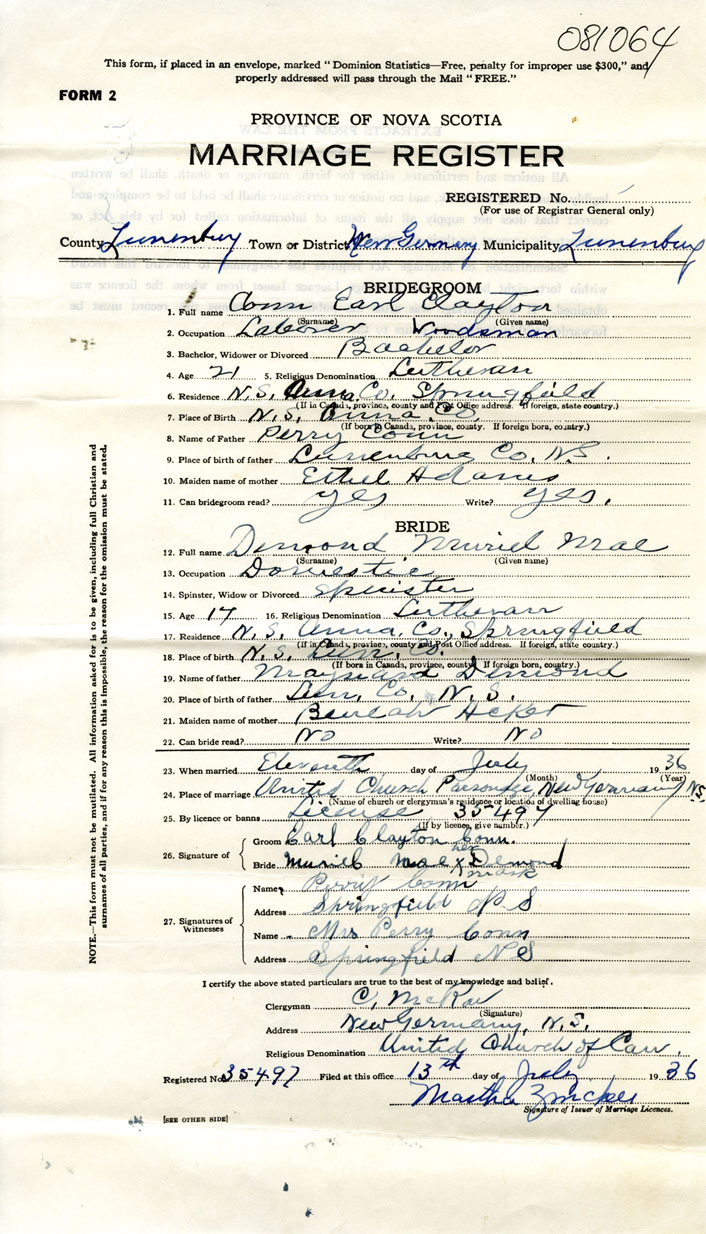 081064
This form, if placed in an envelope, marked "Dominion Statistics—Free, penalty for improper use $300," and
properly addressed will pass through the Mail "FREE."
FORM 2
PROVINCE OF NOVA SCOTIA
MARRIAGE REGISTER
REGISTERED No.
(For use of Registrar General only)
County Lunenburg Town or District New Germany Municipality Lunenburg
BRIDEGROOM
1. Full name Conn Earl Clayton
(Surname) (Given name)
2. Occupation Laborer Woodsman
3. Bachelor, Widower or Divorced Bachelor
4. Age 21 5. Religious Denomination Lutheran
6. Residence N.S. Anna. Co. Springfield
(If in Canada, province, county and Post Office address. If foreign, state country.)
7. Place of Birth N.S. Anna. Co.
(If born in Canada, province, county. If foreign born, country.)
8. Name of Father Perry Conn
9. Place of birth of father Lunenburg Co. N.S.
10. Maiden name of mother Ethel Adams
11. Can bridegroom read? yes Write? yes.
BRIDE
12. Full name Demond Muriel Mae
(Surname) (Given name)
13. Occupation Domestic
14. Spinster, Widow or Divorced Spinster
15. Age 17 16. Religious Denomination Lutheran
17. Residence N.S. Anna. Co., Springfield
(If in Canada, province, county and Post Office address. If foreign, state country.)
18. Place of birth N.S. Lun. Co.
(If born in Canada, province, county. If foreign born, country.)
19. Name of father Maynard Demond
20. Place of birth of father Lun. Co. N.S.
21. Maiden name of mother Beulah Acker
22. Can bride read? No Write? No
23. When married Eleventh day of July 1936
(Month) (Year)
24. Place of marriage United Church Parsonage, New Germany N.S.
(Name of church or clergyman's residence or location of dwelling house)
25. By licence or banns License 35497
(If by licence, give number.)
26. Signature of Groom Earl Clayton Conn.
her
Bride Muriel Mae x Demond
mark
27. Signatures of Witnesses
Name Perry Conn
Address Springfield N S
Name Mrs Perry Conn
Address Springfield N S
I certify the above stated particulars are true to the best of my knowledge and belief.
Clergyman C. McRae
(Signature)
Address New Germany, N.S.
Religious Denomination United Church of Can.
Registered No. 35497 Filed at this office 13th day of July 1936
Martha Zinck
Signature of Issuer of Marriage Licences.
[SEE OTHER SIDE]
NOTE.—This form must not be mutilated. All information asked for is to be given, including full Christian and
surnames of all parties, and if for any reason this is impossible, the reason for the omission must be stated.